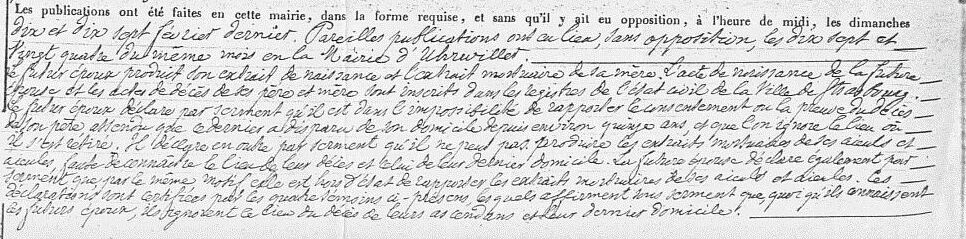 Les publications ont été faites en cette mairie, dans la forme requise, et sans qu'il y ait eu opposition, à l'heure de midi, les dimanches
dix et dix sept février dernier. Pareilles publications ont eu lieu, sans opposition, les dix sept et
vingt quatre du même mois en la Mairie d'Uhrwiller
Le futur époux produit son extrait de naissance et l'extrait mortuaire de sa mère. L'acte de naissance de la future
épouse et les actes de décès de ses père et mère sont inscrits dans les registres de l'état civil de la Ville de Strasbourg.
Le futur époux déclare par serment qu'il est dans l'impossibilité de rapporter le consentement ou la preuve du décès
de son père, attendu que ce dernier a disparu de son domicile depuis environ quinze ans, et que l'on ignore le lieu où
il s'est retiré. Il déclare en outre par serment qu'il ne peut pas produire les extraits mortuaires de ses aieuls et
aieules faute de connaître le lieu de leur décès et celui de leur dernier domicile. La future épouse déclare également par
serment que, par le même motif, elle est hors d'état de rapporter les extraits mortuaires de ses aieuls et aieules. Ces
déclarations sont certifiées par les quatre témoins ci-présens, lesquels affirment sous serment que, quoiqu'ils connaissent
les futurs époux, ils ignorent le lieu du décès de leurs ascendans et leur dernier domicile.